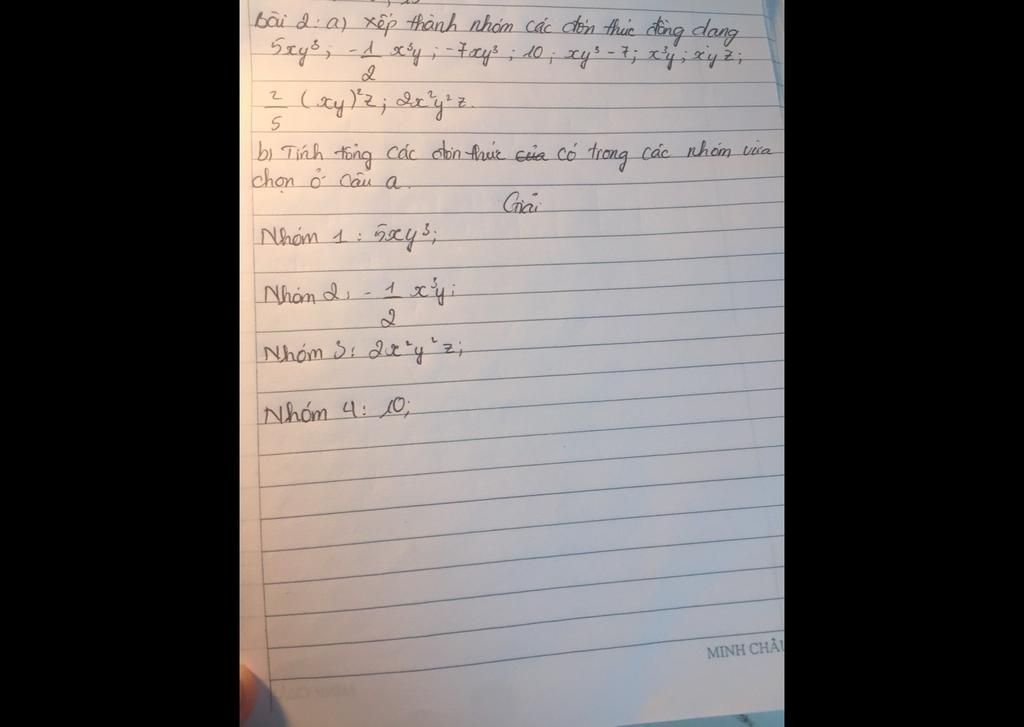 Bài 2: a) xếp thành nhóm các đơn thức đồng dạng
5xy³; -1/2 x³y; -7xy³; 10; xy³ - 7; x³y; x²y²z;
2/5 (xy)²z; 2x²y²z.
b) Tính tổng các đơn thức của có trong các nhóm vừa
chọn ở câu a.
Giải
Nhóm 1: 5xy³;
Nhóm 2: -1/2 x³y;
Nhóm 3: 2x²y²z;
Nhóm 4: 10;
MINH CHÂU